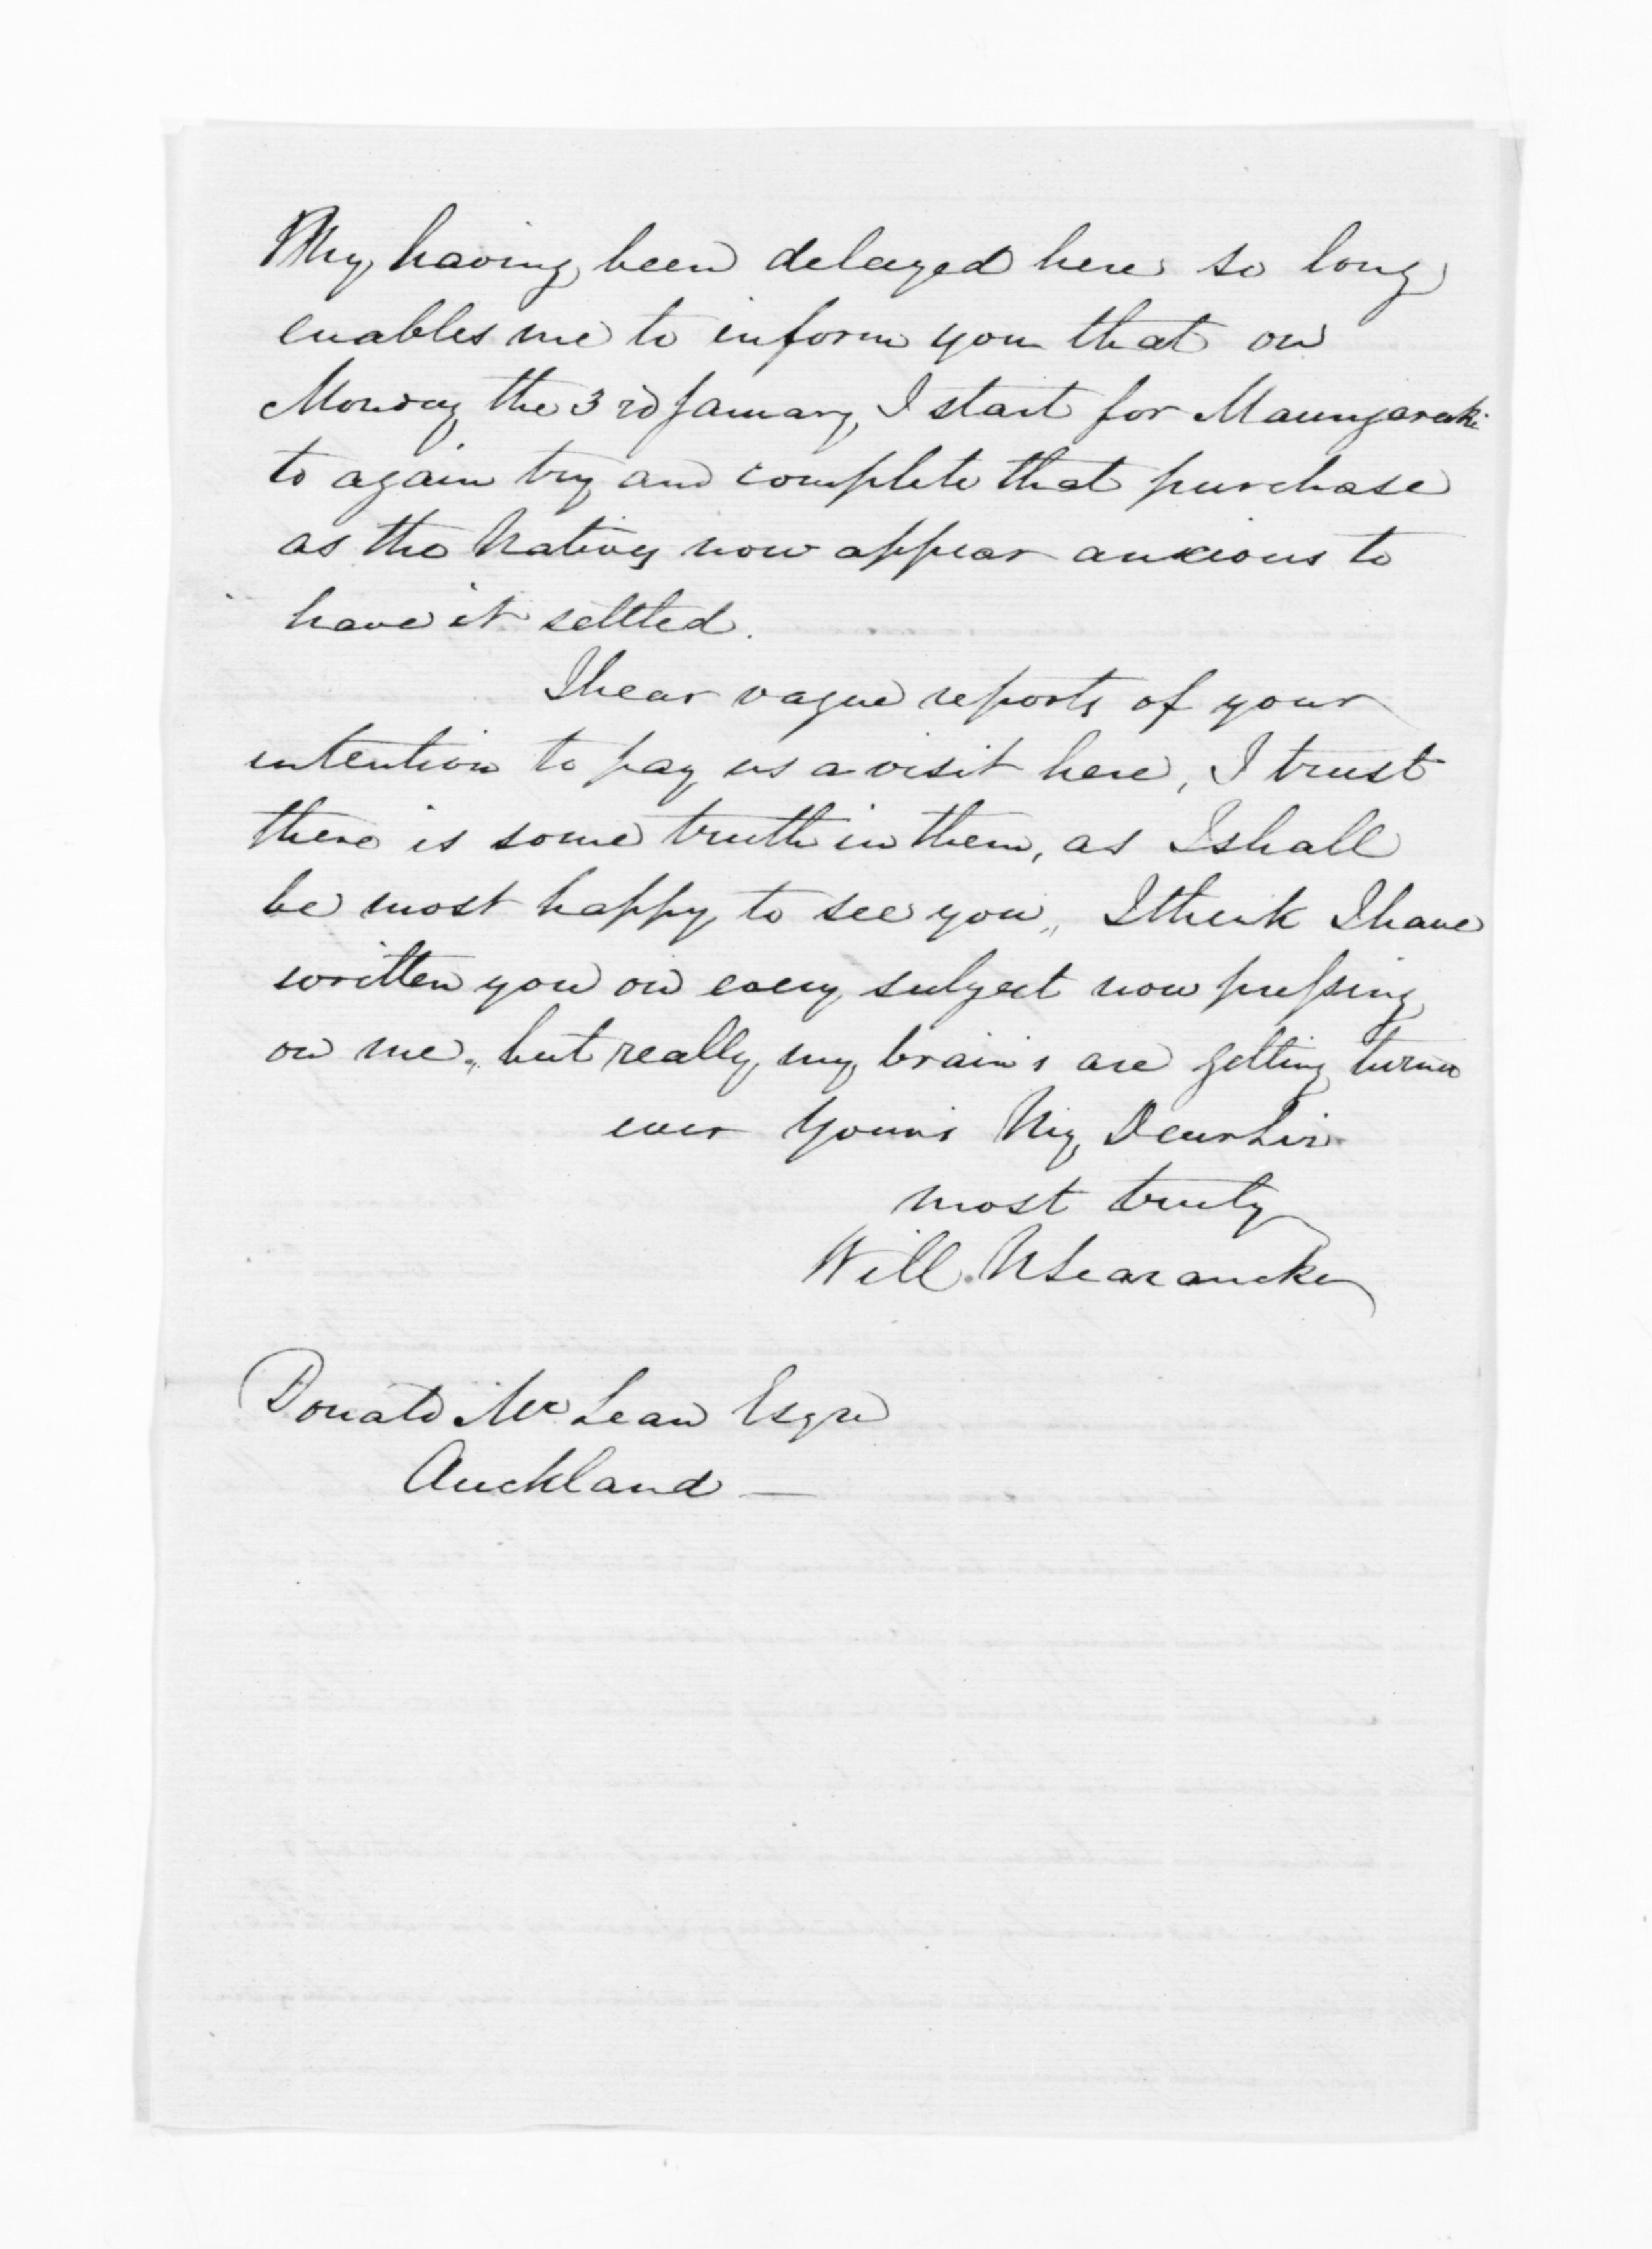 My having been delayed here so long
enables me to inform you that on
Monday the 3rd January, I start for Maungaraki
to again try and complete that purchase
as the Natives now appear anxious to
have it settled.
I hear vague reports of your
intention to pay us a visit here, I trust
there is some truth in them, as I shall
be most happy to see you,, I think I have
written you on every subject now pressing
on me,, but really my brains are getting turned
ever Yours My Dear Sir
most truly
Will. N Searancke
Donald McLean Esqre
Auckland —